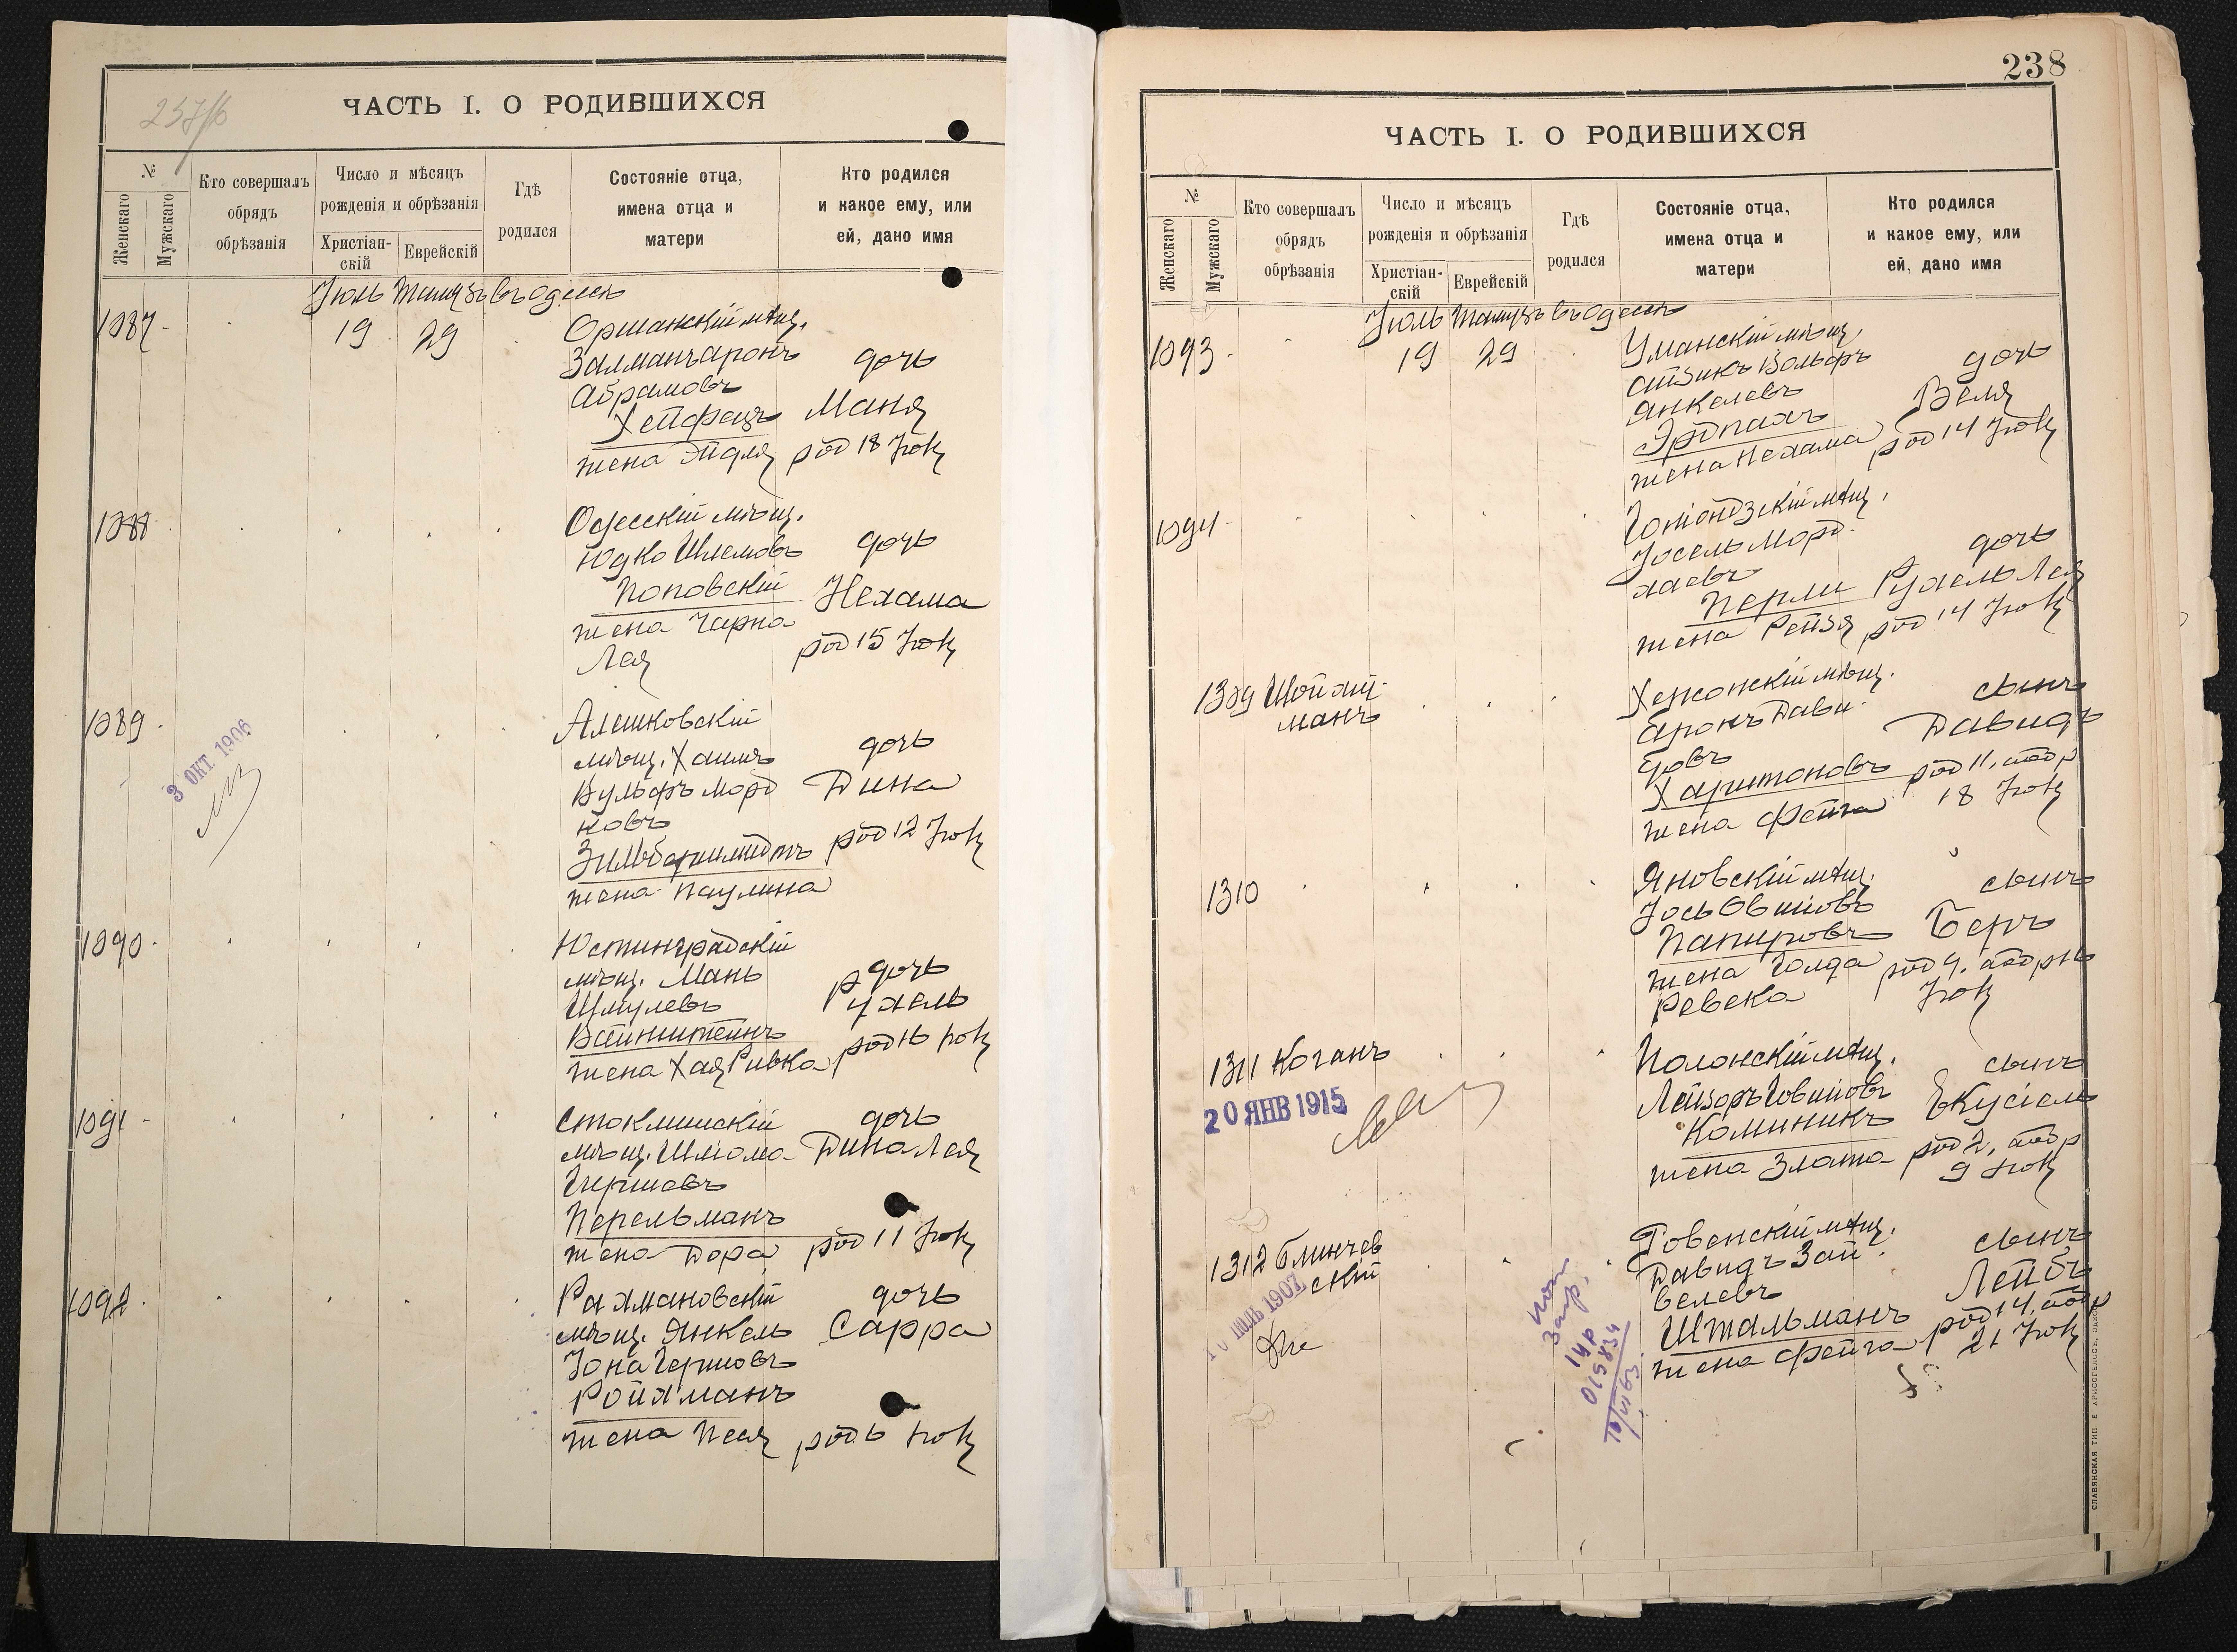 237/б
ЧАСТЬ I. О РОДИВШИХСЯ
№
Женскаго
Мужскаго
Кто совершалъ
обрядъ
обрѣзанія
Число и мѣсяцъ
рожденія и обрѣзанія
Христіан-
скій
Еврейскій
Гдѣ
родился
Состояніе отца,
имена отца и
матери
Кто родился
и какое ему, или
ей, дано имя
Іюль Тамузъ въ Одессѣ
1087
19 29
Оршанскій мѣщ.
Залманъ Аронъ
Абрамовъ
Хейфецъ
жена Эйдля
дочь
Маня
род 18 Іюля
1088
Одесскій мѣщ.
Юдко Шлемовъ
Поповскій
жена Чарна
Лея
дочь
Нехама
род 15 Іюля
1089
3 ОКТ. 1906
Алешковскій
мѣщ. Хаимъ
Вульфъ Морд
ковъ
Зильбершмидтъ
жена Паулина
дочь
Дина
род 12 Іюля
1090
Юстинградскій
мѣщ. Мань
Шмулевъ
Вайнштейнъ
жена Хая Ривка
дочь
Рухель
род 16 Іюля
1091
мѣщ. Шліома
Гершовъ
Перельманъ
жена Дора
дочь
Дина Лея
род 11 Іюля
1092
Рахмановскій
мѣщ. Янкель
Іона Гершовъ
Ройхманъ
жена Песя
дочь
Сарра
род 6 Іюля
238
ЧАСТЬ I. О РОДИВШИХСЯ
№
Женскаго
Мужскаго
Кто совершалъ
обрядъ
обрѣзанія
Число и мѣсяцъ
рожденія и обрѣзанія
Христіан-
скій
Еврейскій
Гдѣ
родился
Состояніе отца,
имена отца и
матери
Кто родился
и какое ему, или
ей, дано имя
Іюль Тамузъ въ Одессѣ
1093
19 29
Уманскій мѣщ.
Айзикъ Вольфъ
Янкелевъ
жена Нехама
дочь
Веля
род 14 Іюля
1094
Гоніондзскій мѣщ.
Іосель Морд
хаевъ
Перли
жена Рейзя
дочь
Рухель Лея
род 14 Іюля
1309
Шойхит
манъ
Херсонскій мѣщ.
Аронъ Дави
довъ
Харитоновъ
жена Фейга
сынъ
Давидъ
род 11, авдр
18 Іюля
1310
Яновскій мѣщ.
Іось Овшіовъ
Папировъ
жена Голда
Ревека
сынъ
Беръ
Іюля
1311 Коганъ
20 ЯНВ 1915
Полонскій мѣщ.
Лейзоръ Іовшіовъ
Коминикъ
жена Злата
сынъ
Екусіель
род 2, авдр
9 Іюля
1312 Блинчев
скій
10 ІЮЛЬ 1907
Ровенскій мѣщ.
Давидъ Зай
велевъ
Штальманъ
жена Фейга
сынъ
Лейбъ
род 14, авдр
21 Іюля
015834
СЛАВЯНСКАЯ ТИП Е ХРИСОГЕЛОСЪ, ОДЕССА